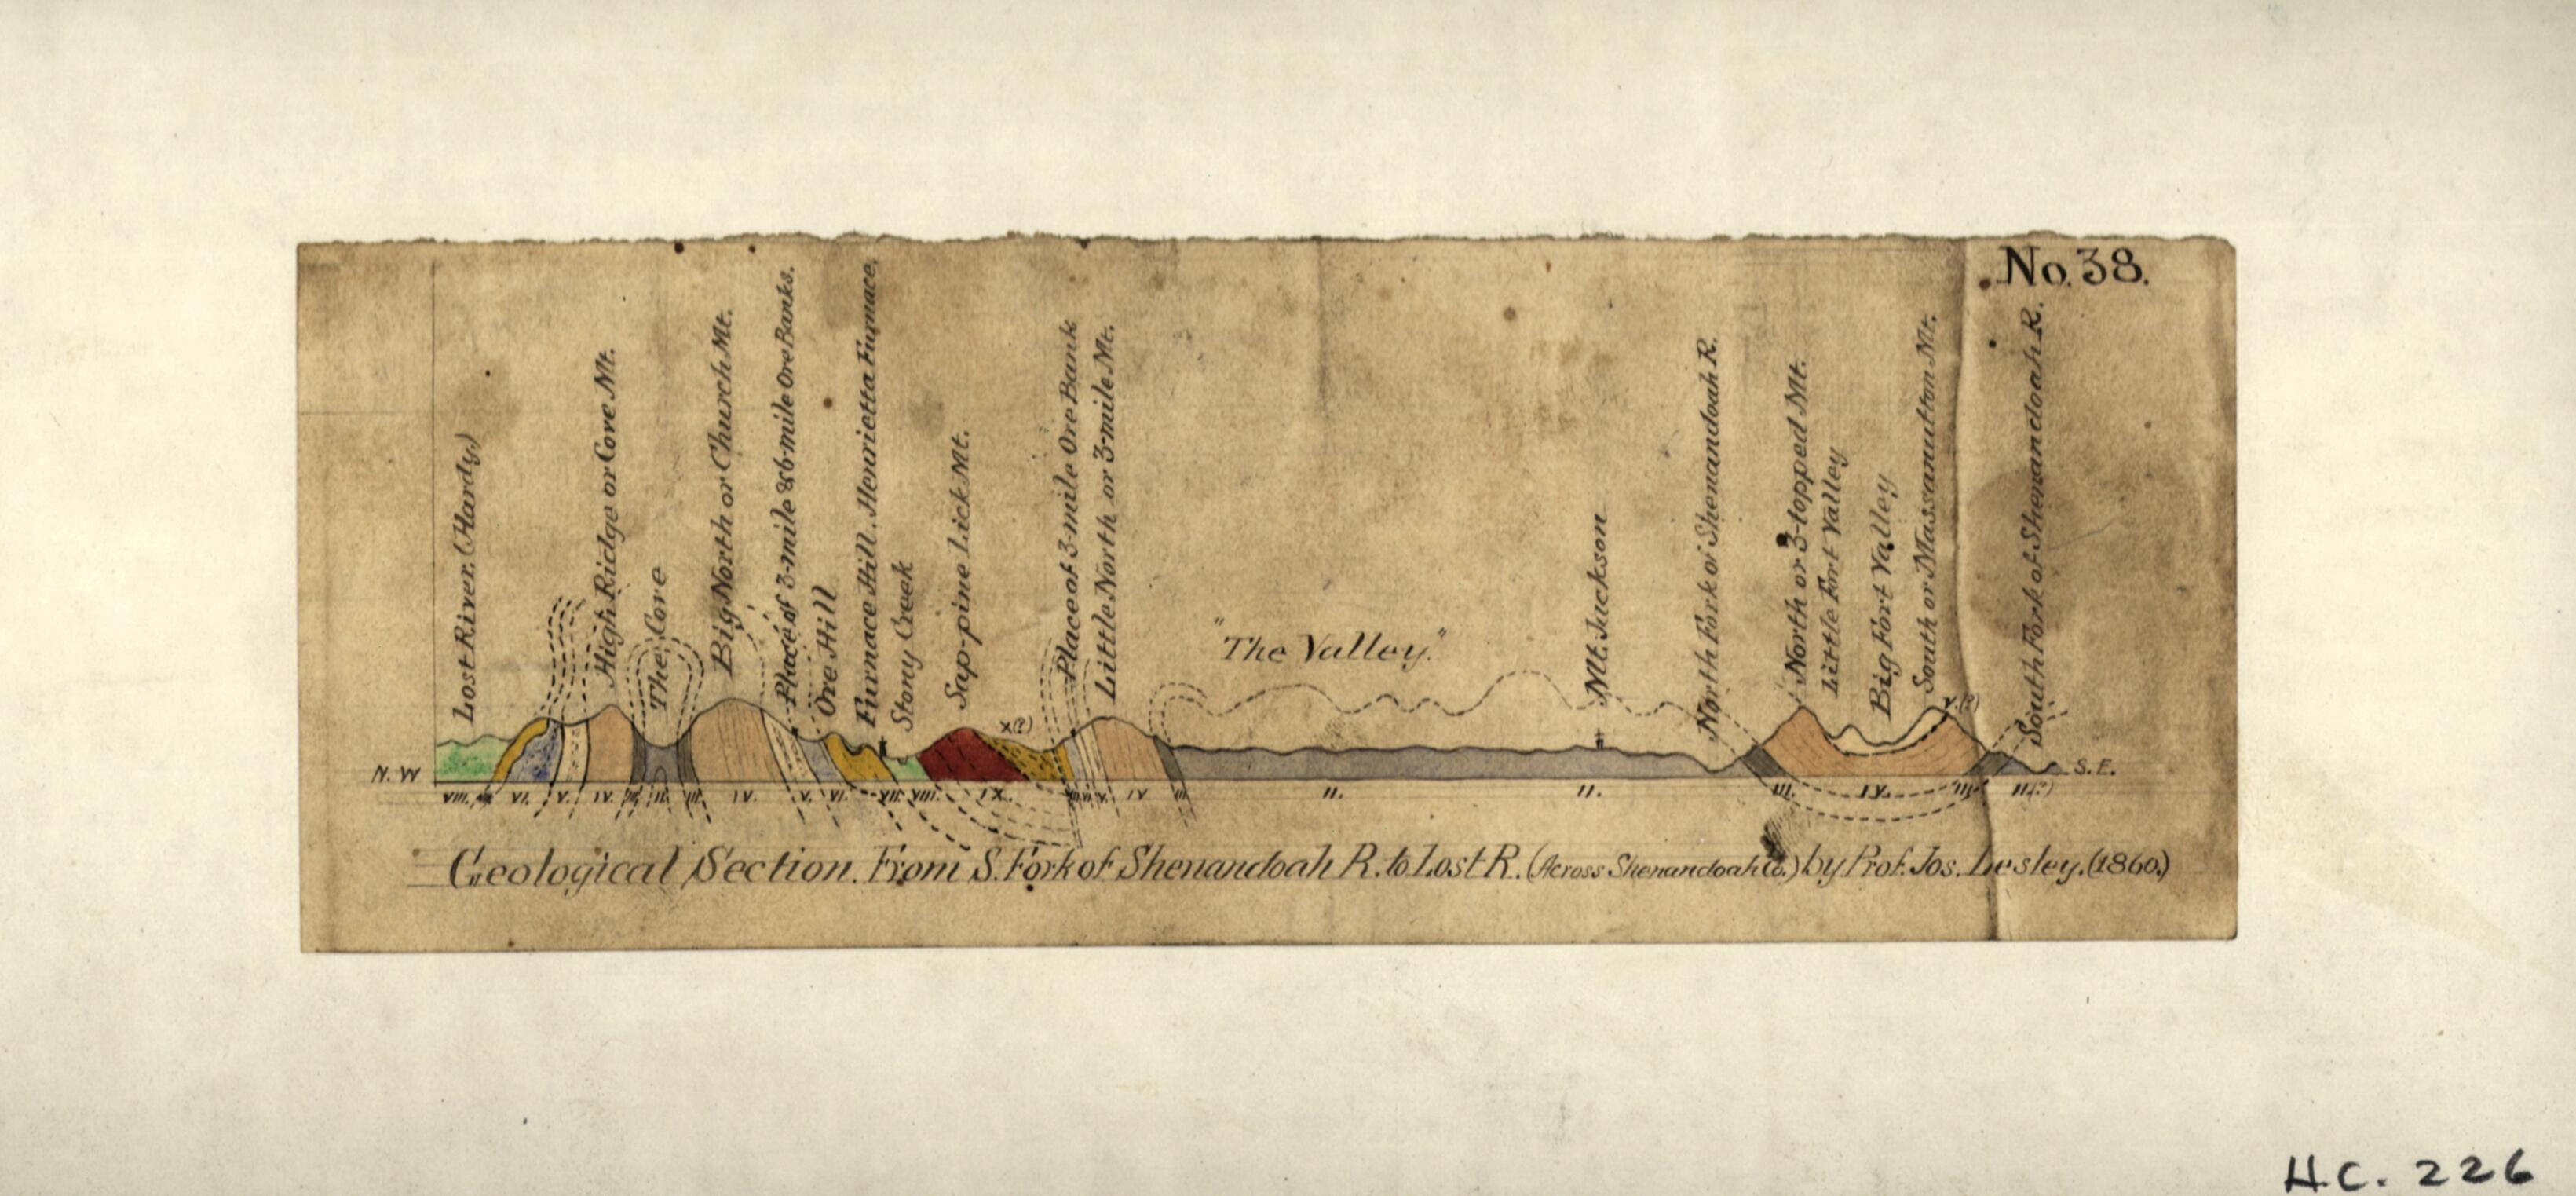 No. 38.
Lost River. (Hardy.)
High Ridge or Cove Mt.
The Cove
Big North or Church Mt.
Place of 3-mile & 6-mile Ore Banks.
Ore Hill
Furnace Hill. Henrietta Furnace.
Stony Creek
Sap-pine Lick Mt.
Place of 3-mile Ore Bank
Little North or 3-mile Mt.
"The Valley."
Mt. Jackson
North Fork of Shenandoah R.
North or 3-topped Mt.
Little Fort Valley
Big Fort Valley
South or Massanutton Mt.
South Fork of Shenandoah R.
X(?)
V.(?)
N.W
S.E.
VIII. VI. V. IV. III. II. III. IV. V. VI. VII. VIII. IX. V. IV III. II. II. III. IV. III. II.(?)
Geological Section. From S. Fork of Shenandoah R. to Lost R. (Across Shenandoah Co.) by Prof. Jos. Lesley. (1860.)
H.C. 226